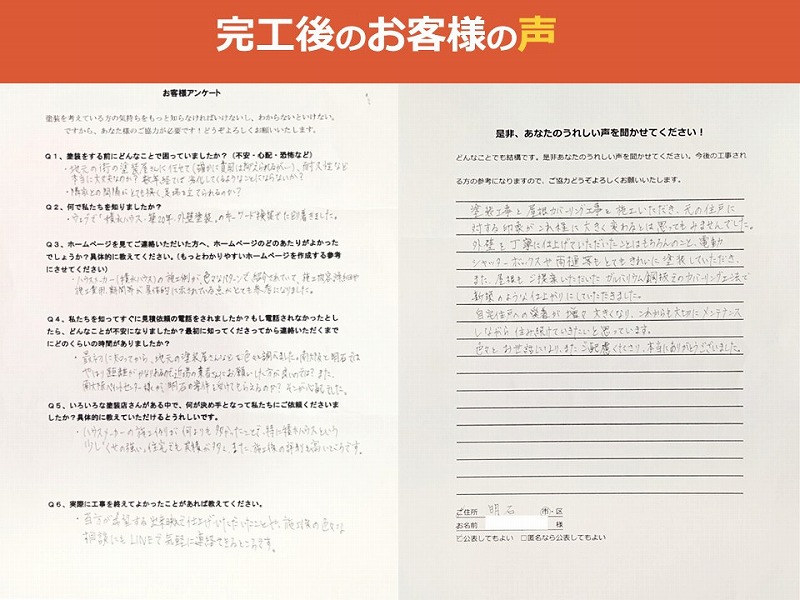 完工後のお客様の声
お客様アンケート
塗装を考えている方の気持ちをもっと知らなければいけないし、わからないといけない。
ですから、あなた様のご協力が必要です！どうぞよろしくお願いいたします。
Q1、塗装をする前にどんなことで困っていましたか？（不安・心配・恐怖など）
・地元の街の塗装屋さんに任せて(確かに費用は抑えられるが…)、耐久性など
本当に大丈夫なのか？数年経てば劣化してくるようなことにならないか？
・隣家との間隔がとても狭く足場を立てられるのか？
Q2、何で私たちを知りましたか？
・ウェブで「積水ハウス・築20年・外壁塗装」のキーワード検索でたどり着きました。
Q3、ホームページを見てご連絡いただいた方へ、ホームページのどのあたりがよかった
でしょうか？具体的に教えてください。（もっとわかりやすいホームページを作成する参考
にさせてください）
・ハウスメーカー(積水ハウス)の施工例が色々なパターンで紹介されていて、施工内容詳細や
施工費用、期間等が具体的に示されている点がとても参考になりました。
Q4、私たちを知ってすぐに見積依頼の電話をされましたか？もし電話されなかったとし
たら、どんなことが不安になりましたか？最初に知ってくださってから連絡いただくまで
にどのくらいの時間がありましたか？
やはり距離がかなりあるので、近場の業者さんにお願いした方が良いのでは？また、
Q5、いろいろな塗装店さんがある中で、何が決め手となって私たちにご依頼くださいま
したか？具体的に教えていただけるとうれしいです。
・ハウスメーカーの施工例が何よりも多かったことで、特に積水ハウスという
少しくせの強い住宅でも実績が多く、また、施工後の評判も高いところです。
Q6、実際に工事を終えてよかったことがあれば教えてください。
・当方が希望する出来映えで仕上げていただいたことや、施工後の色々な
相談にもLINEで気軽に連絡できるところです。
是非、あなたのうれしい声を聞かせてください！
どんなことでも結構です。是非あなたのうれしい声を聞かせてください。今後の工事され
る方の参考になりますので、ご協力どうぞよろしくお願いいたします。
塗装工事と屋根カバーリング工事を施工いただき、元の住戸に
対する印象がこんなに大きく変わるとは思ってもみませんでした。
外壁を丁寧に仕上げていただいたことはもちろんのこと、電動
シャッターボックスや雨樋等もとてもきれいに塗装していただき、
また、屋根もご提案いただいたガルバリウム鋼板でのカバーリング工法で
新築のような仕上がりにしていただきました。
自宅住戸への愛着が増々大きくなり、これからも大切にメンテナンス
しながら住み続けていきたいと思っています。
色々とお世話になり、またご配慮くださり、本当にありがとうございました。
ご住所 明石 ㊞・区
お名前 様
☑公表してもよい □匿名なら公表してもよい